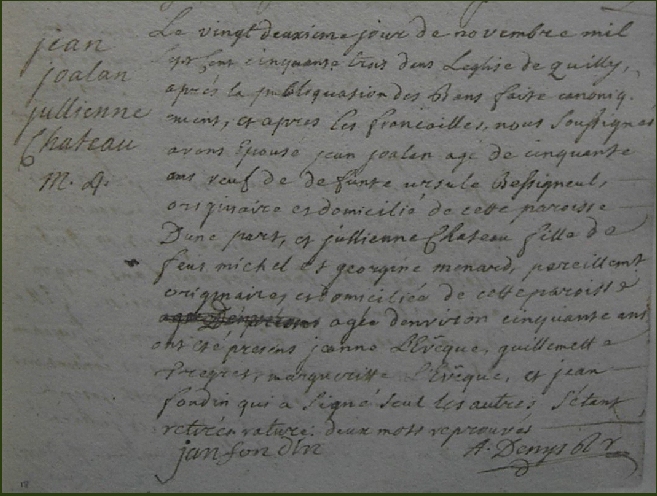 jean
joalan
jullienne
Chateau
m. a.
Le vingt deuxieme jour de novembre mil
sept cent cinquante trois dans Leglise de quilly,
aprés la publiquation des Bans faite canoniq.
ment, et apres les fiancailles, nous soussignés
avons Epousé jean joalan agé de cinquante
ans veuf de defunte ursule Bessigneul,
originaire et domicilié de cette paroisse
Dune part, et jullienne Chateau fille de
feus michel et georgine menard, pareillemt
originaires et domiciliée de cette paroisse
agée denviron cinquante ans
ont eté presens jeanne L'Evêque, guillemette
margueritte L'Evêque, et jean
fondin qui a signé seul les autres s'etant
retirés deux mots reprouvés
jan fondin
A. Denys